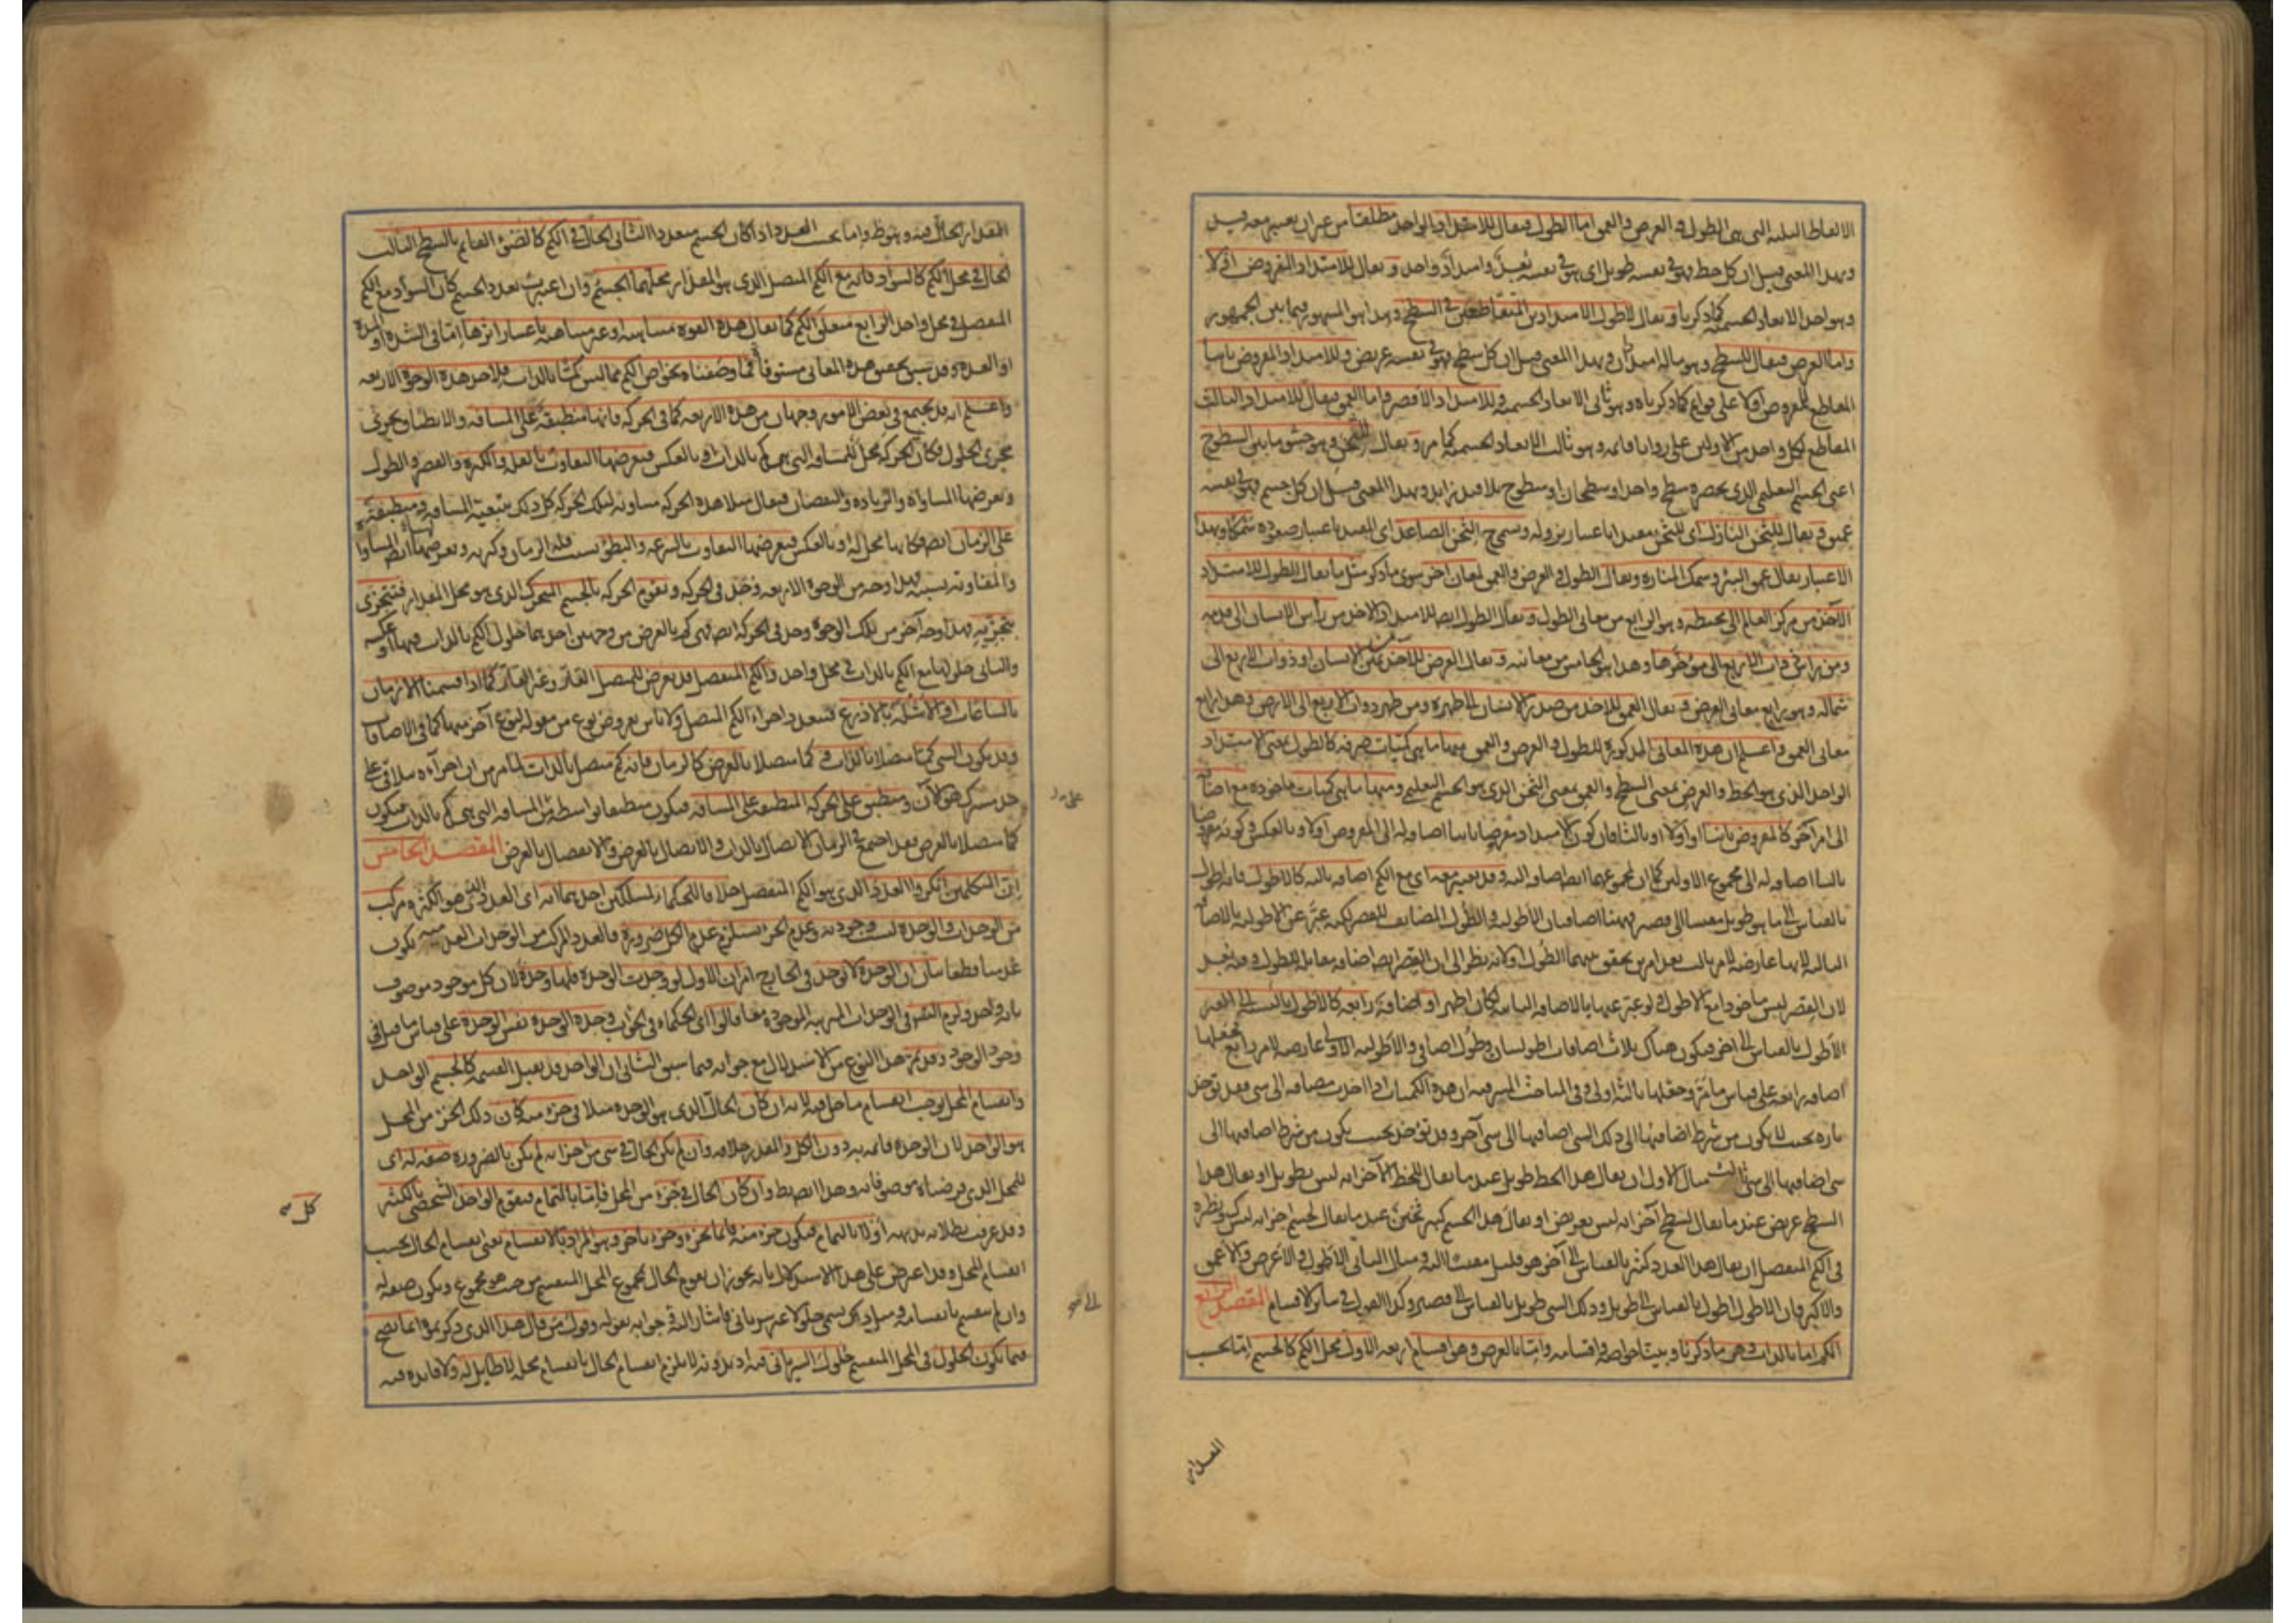 الالفاظ الثلثة التى هى الطول والعرض والعمق اما الطول فيقال للامتداد الواحد مطلقا من غير ان يعتبر معه قيد
وبهذا المعنى قيل ان كل خط فهو فى نفسه طويل اى هو فى نفسه بعد وامتداد واحد ويقال للامتداد المفروض اولا
وهو احد الابعاد الجسمية كما ذكرنا ويقال لاطول الامتدادين المتقاطعين فى السطح وهذا هو المشهور فيما بين الجمهور
واما العرض فيقال للسطح وهو ماله امتدادان وبهذا المعنى قيل ان كل سطح فهو فى نفسه عريض وللامتداد المفروض ثانيا
المقاطع للمفروض اولا على قوائم كما ذكرناه وهو ثانى الابعاد الجسمية وللامتداد الاقصر واما العمق فيقال للامتداد الثالث
المقاطع لكل واحد من الاولين على زوايا قائمة وهو ثالث الابعاد الجسمية كما مر ويقال للثخن وهو حشو ما بين السطوح
اعنى الجسم التعليمى الذى يحصره سطح واحد او سطحان او سطوح بلا قيد زايد وبهذا المعنى قيل ان كل جسم فهو فى نفسه
عميق ويقال للثخن النازل اى للثخن مقيدا باعتبار نزوله ويسمى الثخن الصاعد اى المقيد باعتبار صعوده سمكا وبهذا
الاعتبار يقال عمق البئر وسمك المنارة ويقال الطول والعرض والعمق لمعان اخر سوى ما ذكر مثل ما يقال الطول للامتداد
الآخذ من مركز العالم الى محيطه وهو الرابع من معانى الطول ويقال الطول ايضا للامتداد الآخذ من رأس الانسان الى قدمه
ومن رأس ذوات الاربع الى مؤخرها وهذا هو الخامس من معانيه ويقال العرض للآخذ من يمين الانسان او ذوات الاربع الى
شماله وهو رابع معانى العرض ويقال العمق للآخذ من صدر الانسان الى ظهره ومن ظهر ذوات الاربع الى الارض وهذا رابع
معانى العمق واعلم ان هذه المعانى المذكورة للطول والعرض والعمق منها ما هى كميات صرفة كالطول بمعنى الامتداد
الواحد الذى هو الخط والعرض بمعنى السطح والعمق بمعنى الثخن الذى هو الجسم التعليمى ومنها ما هى كميات ماخوذة مع اضافة
الى امر آخر كالمفروض ثانيا او اولا او ثالثا فان كون الامتداد مفروضا ثانيا اضافة له الى المفروض اولا وبالعكس وكونه مفروضا
ثالثا اضافة له الى مجموع الاولين كما ان لمجموعهما ايضا اضافة اليه وقد يعتبر معه اى مع الكم اضافة ثالثة كالاطول فانه اطول
بالقياس الى ما هو طويل مقيسا الى قصير
لان القصر ليس ماخوذا مع الاطول ولو عبر عنها بالاضافة الثانية لكان اظهر او اضافة رابعة كالاطول بالنسبة الى القصير
الاطول بالقياس الى آخر فيكون هناك ثلاث اضافات
اضافة رابعة على قياس ما مر وجعلها ثالثة اولى وفى المباحث المشرقية ان هذه الكميات اذا اخذت مضافة الى شئ فقد توخذ
تارة بحيث لا يكون من شرط اضافتها الى ذلك الشئ اضافتها الى شئ آخر وقد توخذ بحيث يكون من شرط اضافتها الى
شئ اضافتها الى شئ ثالث مثال الاول ان يقال هذا الخط طويل عندما يقال للخط الآخر انه ليس بطويل او يقال هذا
السطح عريض عندما يقال لسطح آخر انه ليس بعريض او يقال هذا الجسم كبير ثخين عندما يقال لجسم آخر انه ليس كبير ونظيره
فى الكم المنفصل ان يقال هذا العدد كثير بالقياس الى آخر هو قليل مقيسا اليه ومثال الثانى الاطول والاعرض والاعمق
والاكبر فان الاطول اطول بالقياس الى طويل وذلك الشئ طويل بالقياس الى قصير وكذا القول فى سائر الاقسام المقصد الرابع
الكم اما بالذات وهو ما ذكرنا وبينا خواصه واقسامه واما بالعرض وهو اقسام اربعة الاول محل الكم كالجسم اما بحسب
المقدار
المقدار الحال فيه وهو ظ واما بحسب العدد اذا كان الجسم متعددا الثانى الحال فى الكم كالضوء القائم بالسطح الثالث
الحال فى محل الكم كالسواد فانه مع الكم المتصل الذى هو المقدار محلهما الجسم وان اعتبرت تعدد الجسم كان السواد مع الكم
المنفصل فى محل واحد الرابع متعلق الكم كما يقال هذه القوة متناهية او غير متناهية باعتبار اثرها اما فى الشدة او المدة
او العدة وقد سبق تحقيق هذه المعانى مستوفا فما وصفناه بخواص الكم مما ليس كمّا بالذات فلاحد هذه الوجوه الاربعة
واعلم انه قد يجتمع فى بعض الامور وجهان من هذه الاربعة كما فى الحركة فانها منطبقة على المسافة والانطباق يجرى
مجرى الحلول فكان الحركة محل للمسافة التى هى كم بالذات او بالعكس فيعرضها التفاوت بالقلة والكثرة والقصر والطول
ويعرضها المساواة والزيادة والنقصان فيقال مثلا هذه الحركة مساوية لتلك الحركة كل ذلك بتبعية المسافة ومنطبقة
على الزمان ايضا فكانها محل له او بالعكس فيعرضها التفاوت بالسرعة والبطؤ بسبب قلة الزمان وكثرته ويعرضها ايضا المساواة
والمفاوتة بسببه فهذا وجه من الوجوه الاربعة وجد فى الحركة وتقوم الحركة بالجسم المتحرك الذى هو محل المقدار فتتجزى
بتجزيه فهذا وجه آخر من تلك الوجوه وجد فى الحركة ايضا فهى كم بالعرض من وجهين احدهما حلول الكم بالذات فيها او عكسه
والثانى حلولها مع الكم بالذات فى محل واحد والكم المنفصل قد يعرض للمتصل القار وغير القار كما اذا قسمنا الازمان
بالساعات او الاشلة بالاذرع فتتعدد اجزاء الكم المتصل ولا باس بعروض نوع من مقولة لنوع آخر منها كما فى الاضافات
وقد يكون الشئ كمّا متصلا بالذات وكمّا متصلا بالعرض كالزمان فانه كم متصل بالذات لما مر من ان اجزاءه تتلاقى على
حد مشترك هو الآن ومنطبق على الحركة المنطبقة على المسافة فيكون منطبقا بواسطة على المسافة التى هى كم بالذات فيكون
كمّا متصلا بالعرض فقد اجتمع فى الزمان الاتصال بالذات والاتصال بالعرض والانفصال بالعرض المقصد الخامس
ان المتكلمين انكروا العدد الذى هو الكم المنفصل خلافا للحكماء لمسلكين احدهما انه اى العدد الذى هو الكثرة مركب
من الوحدات والوحدة ليست وجودية وعدم الجزء يستلزم عدم الكل ضرورة فالعدد المركب من الوحدات العدمية يكون
عدميا قطعا بيان ان الوحدة لا توجد فى الخارج امران الاول لو وجدت الوحدة فلها وحدة لان كل موجود موصوف
بانه واحد ولزم التسلسل فى الوحدات المترتبة الموجودة معا قالوا اى الحكماء فى الجواب وحدة الوحدة نفس الوحدة على قياس ما قيل فى
وجود الوجود وقد مر هذا النوع من الاستدلال مع جوابه فيما سبق الثانى ان الواحد قد يقبل القسمة كالجسم الواحد
وانقسام المحل يوجب انقسام ما حل فيه لانه ان كان الحال الذى هو الوحدة مثلا فى جزء منه كان ذلك الجزء من المحل
هو الواحد لان الوحدة قائمة به دون الكل والمقدر خلافه وان لم يكن الحال فى شئ من اجزائه لم يكن بالضرورة صفة له اى
للمحل الذى فرضناه موصوفا به وهذا ايضا بط وان كان الحال فى جزء من المحل فاما بالتمام فيقوم الواحد الشخصى بالكثير
وقد عرفت بطلانه بديهة او لا بالتمام فيكون جزء منه قائما بجزء وجزء بآخر وهو المراد بالانقسام يعنى انقسام الحال بحسب
انقسام المحل وقد اعترض على هذا الاستدلال بانه يجوز ان يقوم الحال بمجموع المحل المنقسم من حيث هو مجموع ويكون صفة له
وان لم ينقسم بانقسامه ومثل ذلك يسمى حلولا غير سريانى فاشار اليه فى جوابه بقوله وقول من قال هذا الذى ذكرتموه انما يصح
فيما يكون الحلول فى المحل المنقسم حلول السريانى فيه اذ بدونه لا يلزم انقسام الحال بانقسام محله لا طائل له ولا فائدة فيه